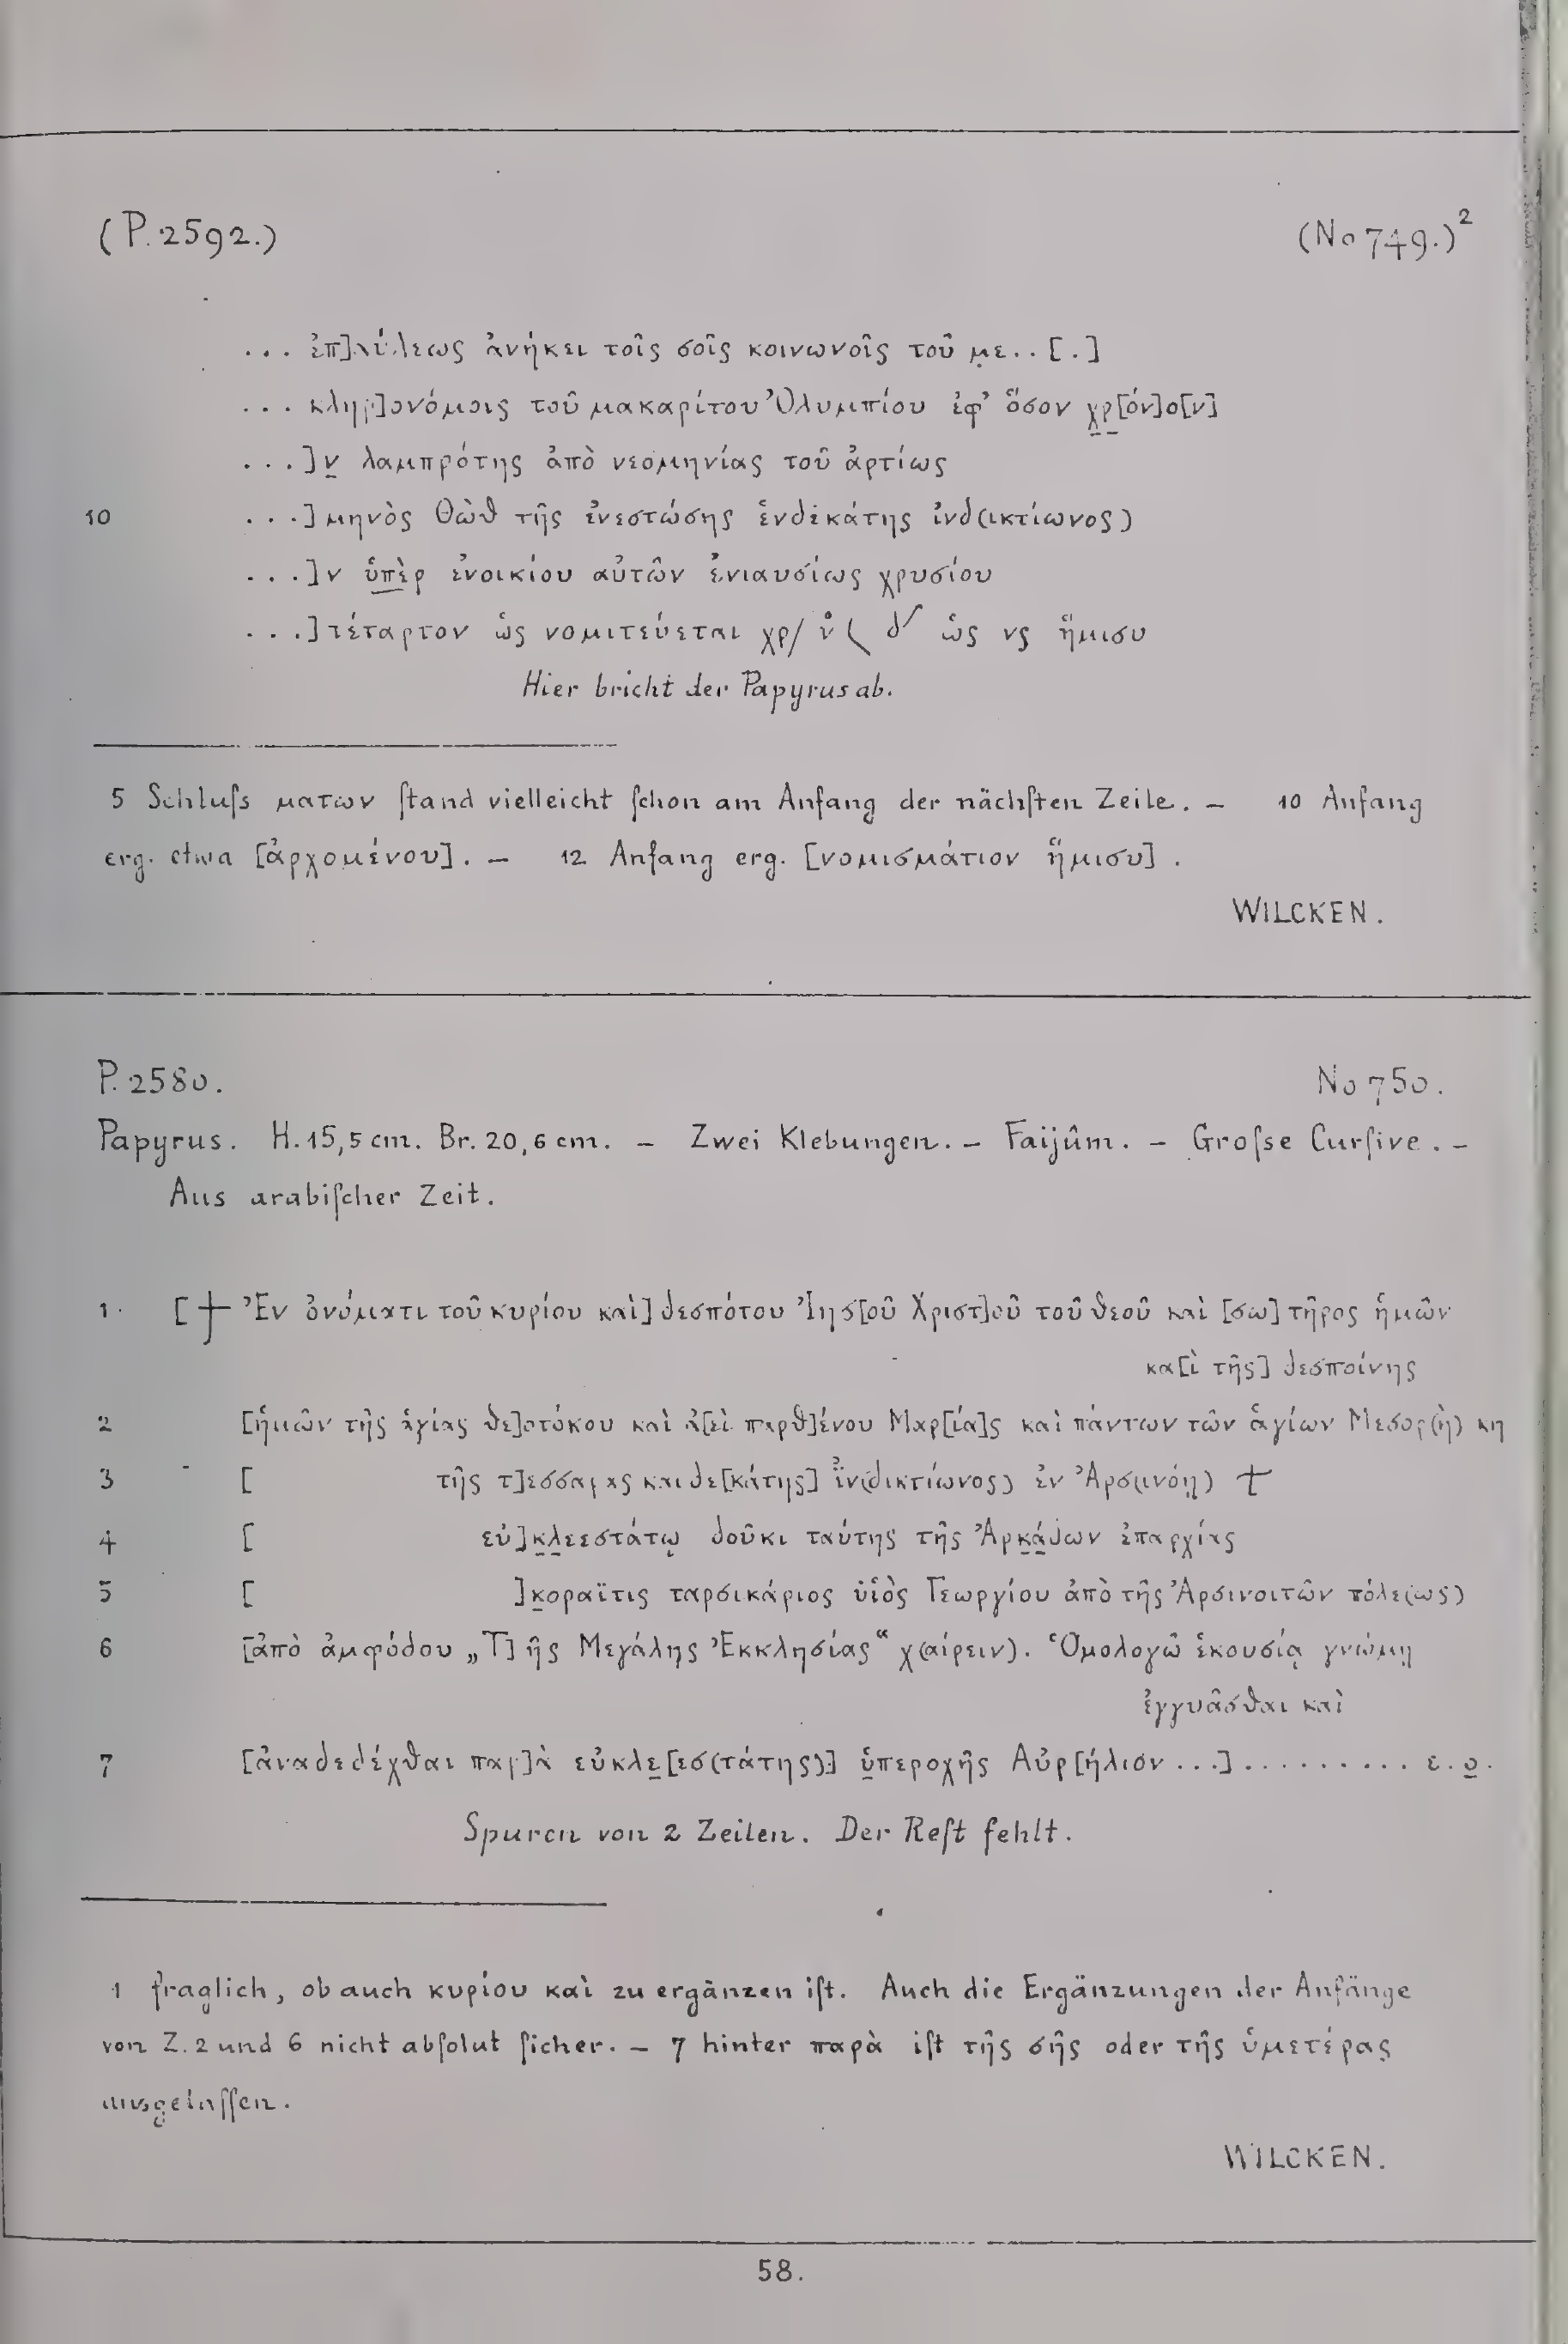 (P. 2592.) (No 749.)²
... ἐπ]αύλεως ἀνήκει τοῖς σοῖς κοινωνοῖς τοῦ με..[.]
... κληρ]ονόμοις τοῦ μακαρίτου Ὀλυμπίου ἐφ' ὅσον χρ[όν]ο[ν]
...]ν λαμπρότης ἀπὸ νεομηνίας τοῦ ἀρτίως
10 ...]μηνὸς Θὼθ τῆς ἐνεστώσης ἑνδεκάτης ἰνδ(ικτίωνος)
...]ν ὑπὲρ ἐνοικίου αὐτῶν ἐνιαυσίως χρυσίου
...]τέταρτον ὡς νομιτεύεται χρ/ ν̊ ( δ' ὡς νς ἥμισυ
Hier bricht der Papyrus ab.
5 Schluſs ματων ſtand vielleicht ſchon am Anfang der nächſten Zeile. — 10 Anfang
erg. etwa [ἀρχομένου]. — 12 Anfang erg. [νομισμάτιον ἥμισυ].
WILCKEN.
P. 2580. No 750.
Papyrus. H. 15,5 cm. Br. 20,6 cm. — Zwei Klebungen. — Faijûm. — Groſse Curſive. —
Aus arabiſcher Zeit.
1. [† Ἐν ὀνόματι τοῦ κυρίου καὶ] δεσπότου Ἰησ[οῦ Χριστ]οῦ τοῦ θεοῦ καὶ [σω]τῆρος ἡμῶν
κα[ὶ τῆς] δεσποίνης
2 [ἡμῶν τῆς ἁγίας θε]οτόκου καὶ ἀ[εὶ παρθ]ένου Μαρ[ία]ς καὶ πάντων τῶν ἁγίων Μεσορ(ὴ) κη
3 [ τῆς τ]εσσαρας και δε[κάτης] ἰν(δικτίωνος) ἐν Ἀρσ(ινόῃ) †
4 [ εὐ]κλεεστάτῳ δοῦκι ταύτης τῆς Ἀρκάδων ἐπαρχίας
5 [ ]κοραϊτις ταρσικάριος ὑϊὸς Γεωργίου ἀπὸ τῆς Ἀρσινοιτῶν πόλε(ως)
6 [ἀπὸ ἀμφόδου „Τ]ῆς Μεγάλης Ἐκκλησίας“ χ(αίρειν). Ὁμολογῶ ἑκουσίᾳ γνώμῃ
ἐγγυᾶσθαι καὶ
7 [ἀναδεδέχθαι παρ]ὰ εὐκλε[εσ(τάτης)] ὑπεροχῆς Αὐρ[ήλιον ...].......... ε.ο.
Spuren von 2 Zeilen. Der Reſt fehlt.
1 fraglich, ob auch κυρίου καὶ zu ergänzen iſt. Auch die Ergänzungen der Anfänge
von Z. 2 und 6 nicht abſolut ſicher. — 7 hinter παρὰ iſt τῆς σῆς oder τῆς ὑμετέρας
ausgelaſſen.
WILCKEN.
58.